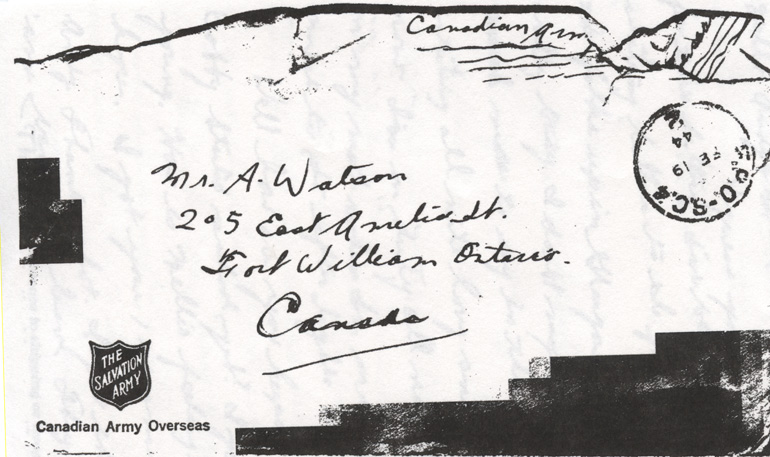 Canadian Arm
F.P.O-S.C.4
FE 19
44
Mr. A. Watson
205 East Amelia St.
Fort William Ontario.
Canada
THE
SALVATION
ARMY
Canadian Army Overseas